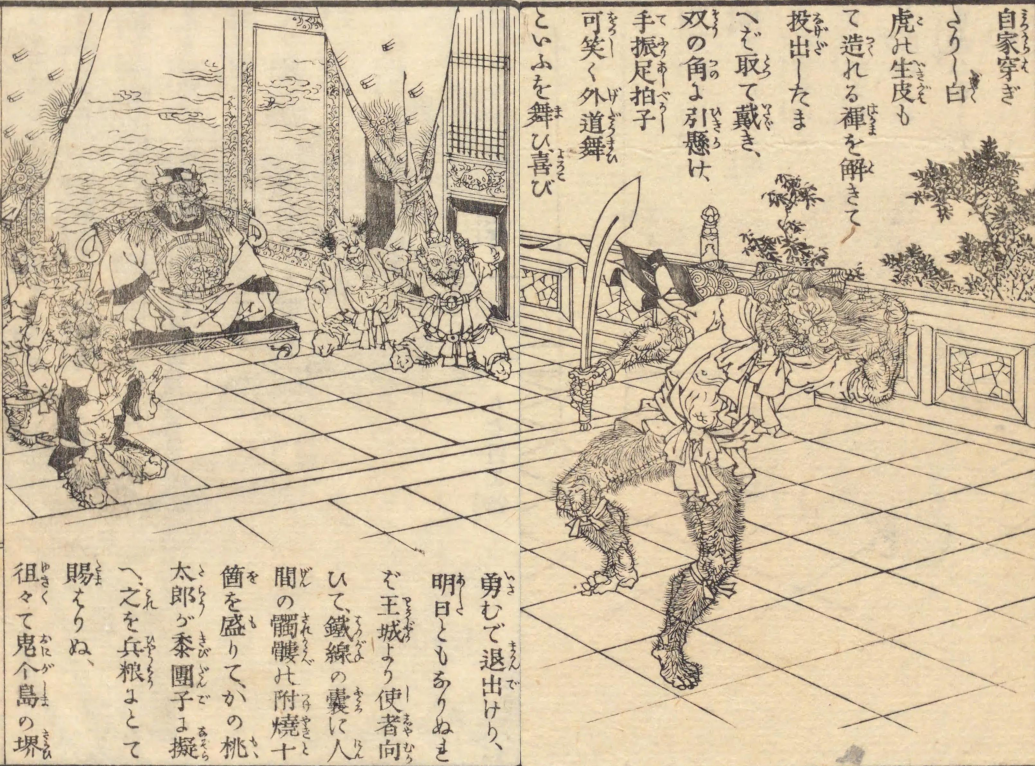 自家穿ぎ
たりし白
虎の生皮も
て造れる褌を解きて
投出したま
へば取て戴き、
双の角に引懸け、
手振足拍子
可笑く外道舞
といふを舞ひ喜び
勇むで退出けり、
明日ともなりぬれ
ば王城より使者向
ひて、鐵線の嚢に人
間の髑髏の附燒十
箇を盛りて、かの桃
太郎が黍團子に擬
へ、之を兵粮にとて
賜はりぬ、
徂々て鬼个島の堺